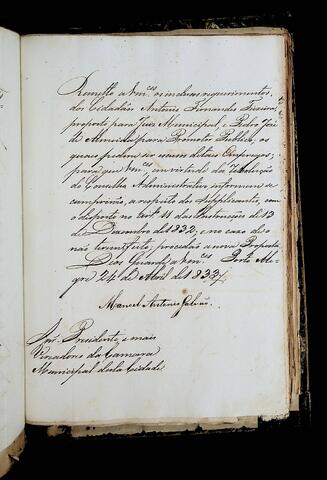 Remetto a Vm.ces os inclusos requerimentos
dos Cidadãos Antonio Fernandes Teixeira
proposto para Juiz Municipal, e Pedro José
de Almeida para Promotor Publico, os
quaes pedem ser
para que Vm.ces em virtude da Resolução
do Conselho Administrativo informem
a respeito dos Supplicantes, com
o disposto no Art.º 11 das Instrucções de 13
de Dezembro de 1832; e no caso de o
não terem feito; procedão a nova Proposta.
Deos Guarde a Vm.ces Porto Ale-
gre 24 de Abril de 1833.
Manoel Antonio Galvão.
Snr. Presidente, e mais
Vereadores da Camara
Municipal desta Cidade.